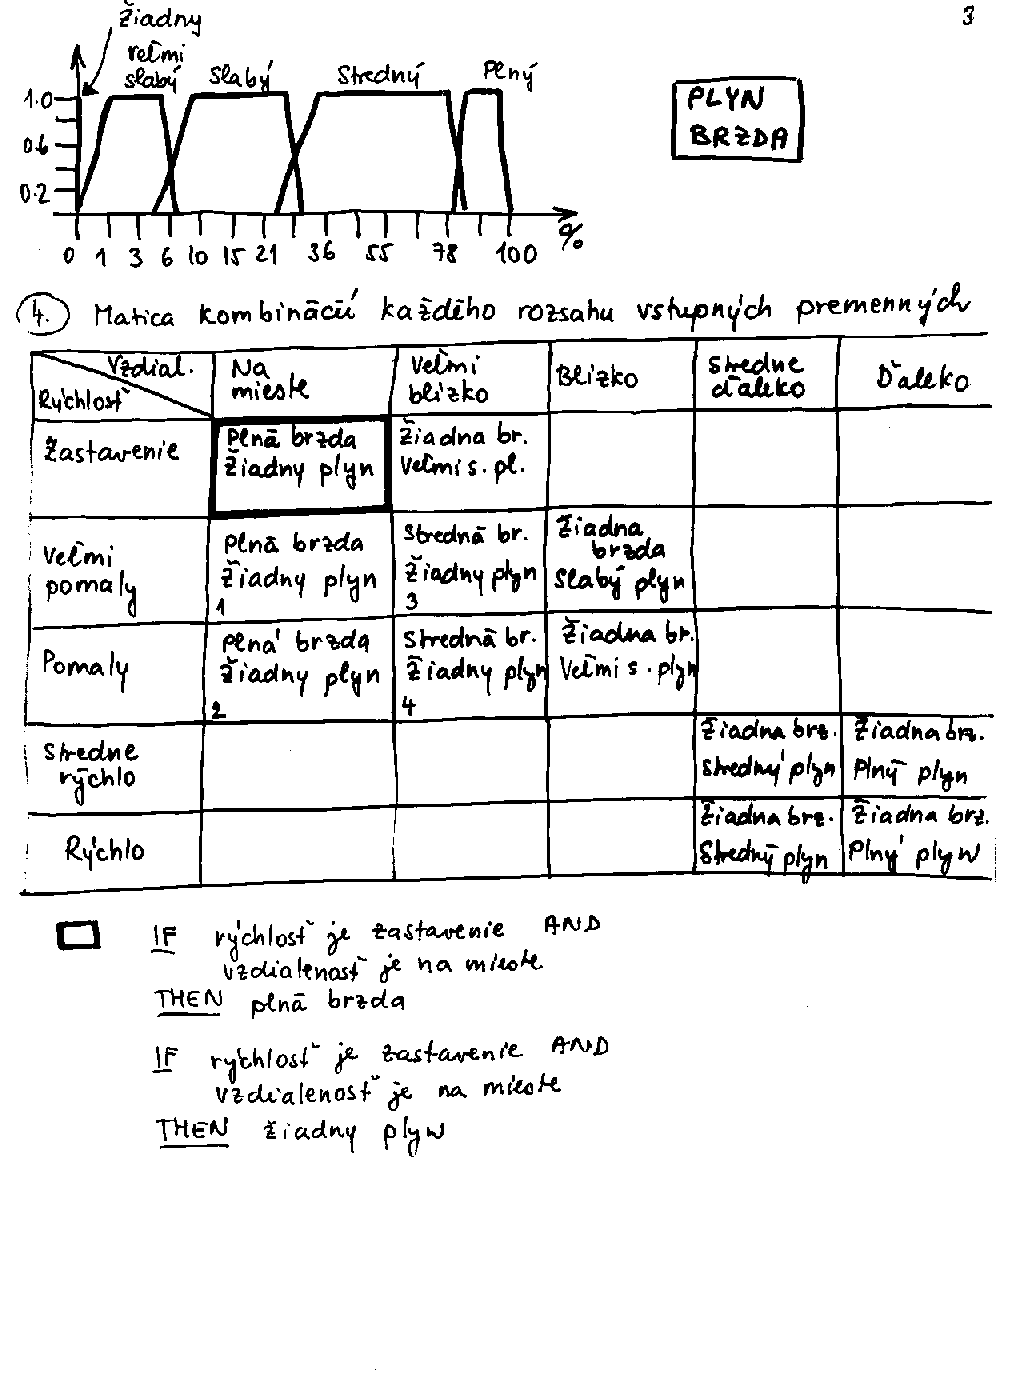 3
Žiadny
veľmi
slabý
Slabý
Stredný
Plný
PLYN
BRZDA
1.0
0.6
0.2
0 1 3 6 10 15 21 36 55 78 100 %
4. Matica kombinácií každého rozsahu vstupných premenných
Vzdial.
Rýchlosť
Na
mieste
Veľmi
blízko
Blízko
Stredne
ďaleko
Ďaleko
Zastavenie
Plná brzda
Žiadny plyn
Žiadna br.
Veľmi s. pl.
Veľmi
pomaly
Plná brzda
Žiadny plyn
1
Stredná br.
Žiadny plyn
3
Žiadna
brzda
Slabý plyn
Pomaly
Plná brzda
Žiadny plyn
2
Stredná br.
Žiadny plyn
4
Žiadna br.
Veľmi s. plyn
Stredne
rýchlo
Žiadna brz.
Stredný plyn
Žiadna brz.
Plný plyn
Rýchlo
Žiadna brz.
Stredný plyn
Žiadna brz.
Plný plyn
IF rýchlosť je zastavenie AND
vzdialenosť je na mieste
THEN plná brzda
IF rýchlosť je zastavenie AND
vzdialenosť je na mieste
THEN žiadny plyn